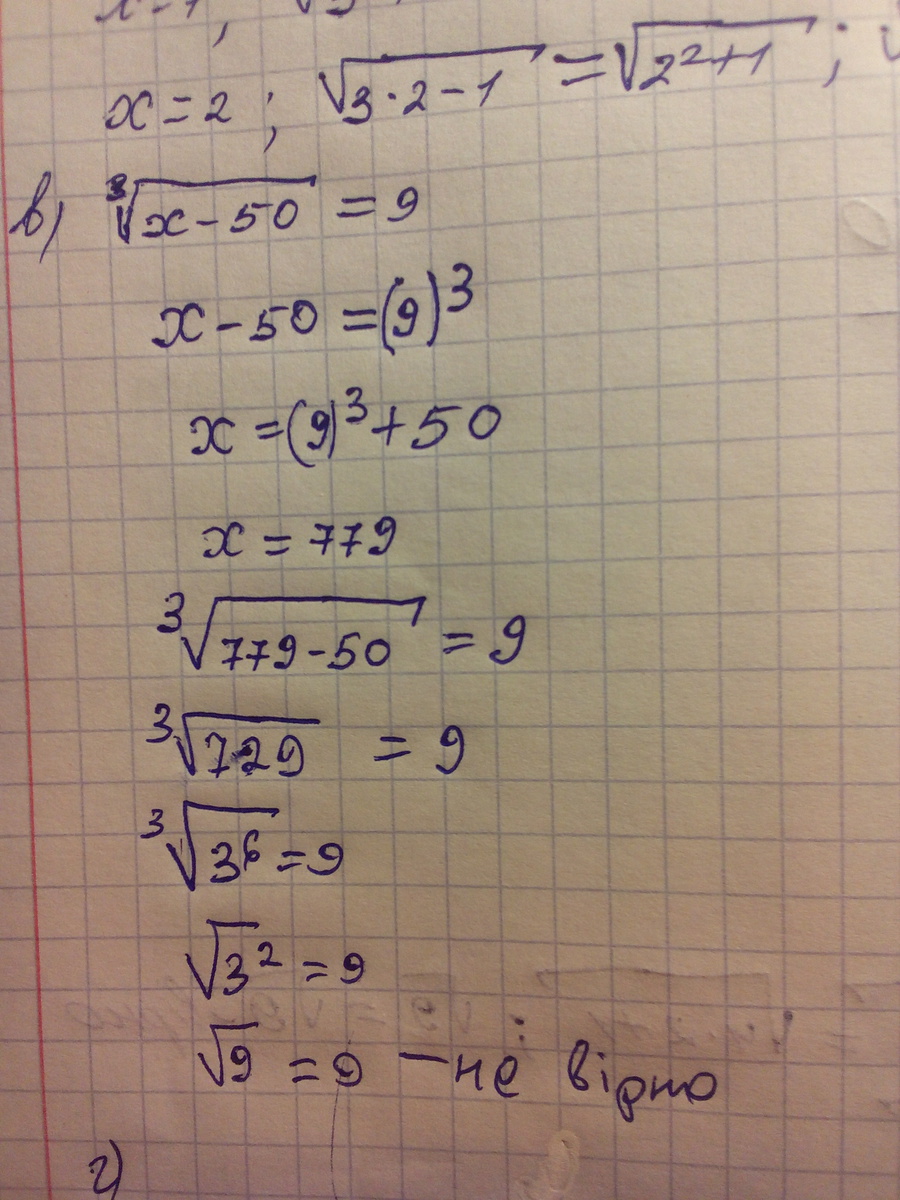 x = 2 ; √(3·2-1) = √(2²+1) ;
в) ³√(x-50) = 9
x-50 = (9)³
x = (9)³+50
x = 779
³√(779-50) = 9
³√729 = 9
³√3⁶ = 9
√3² = 9
√9 = 9 — не вірно
г)